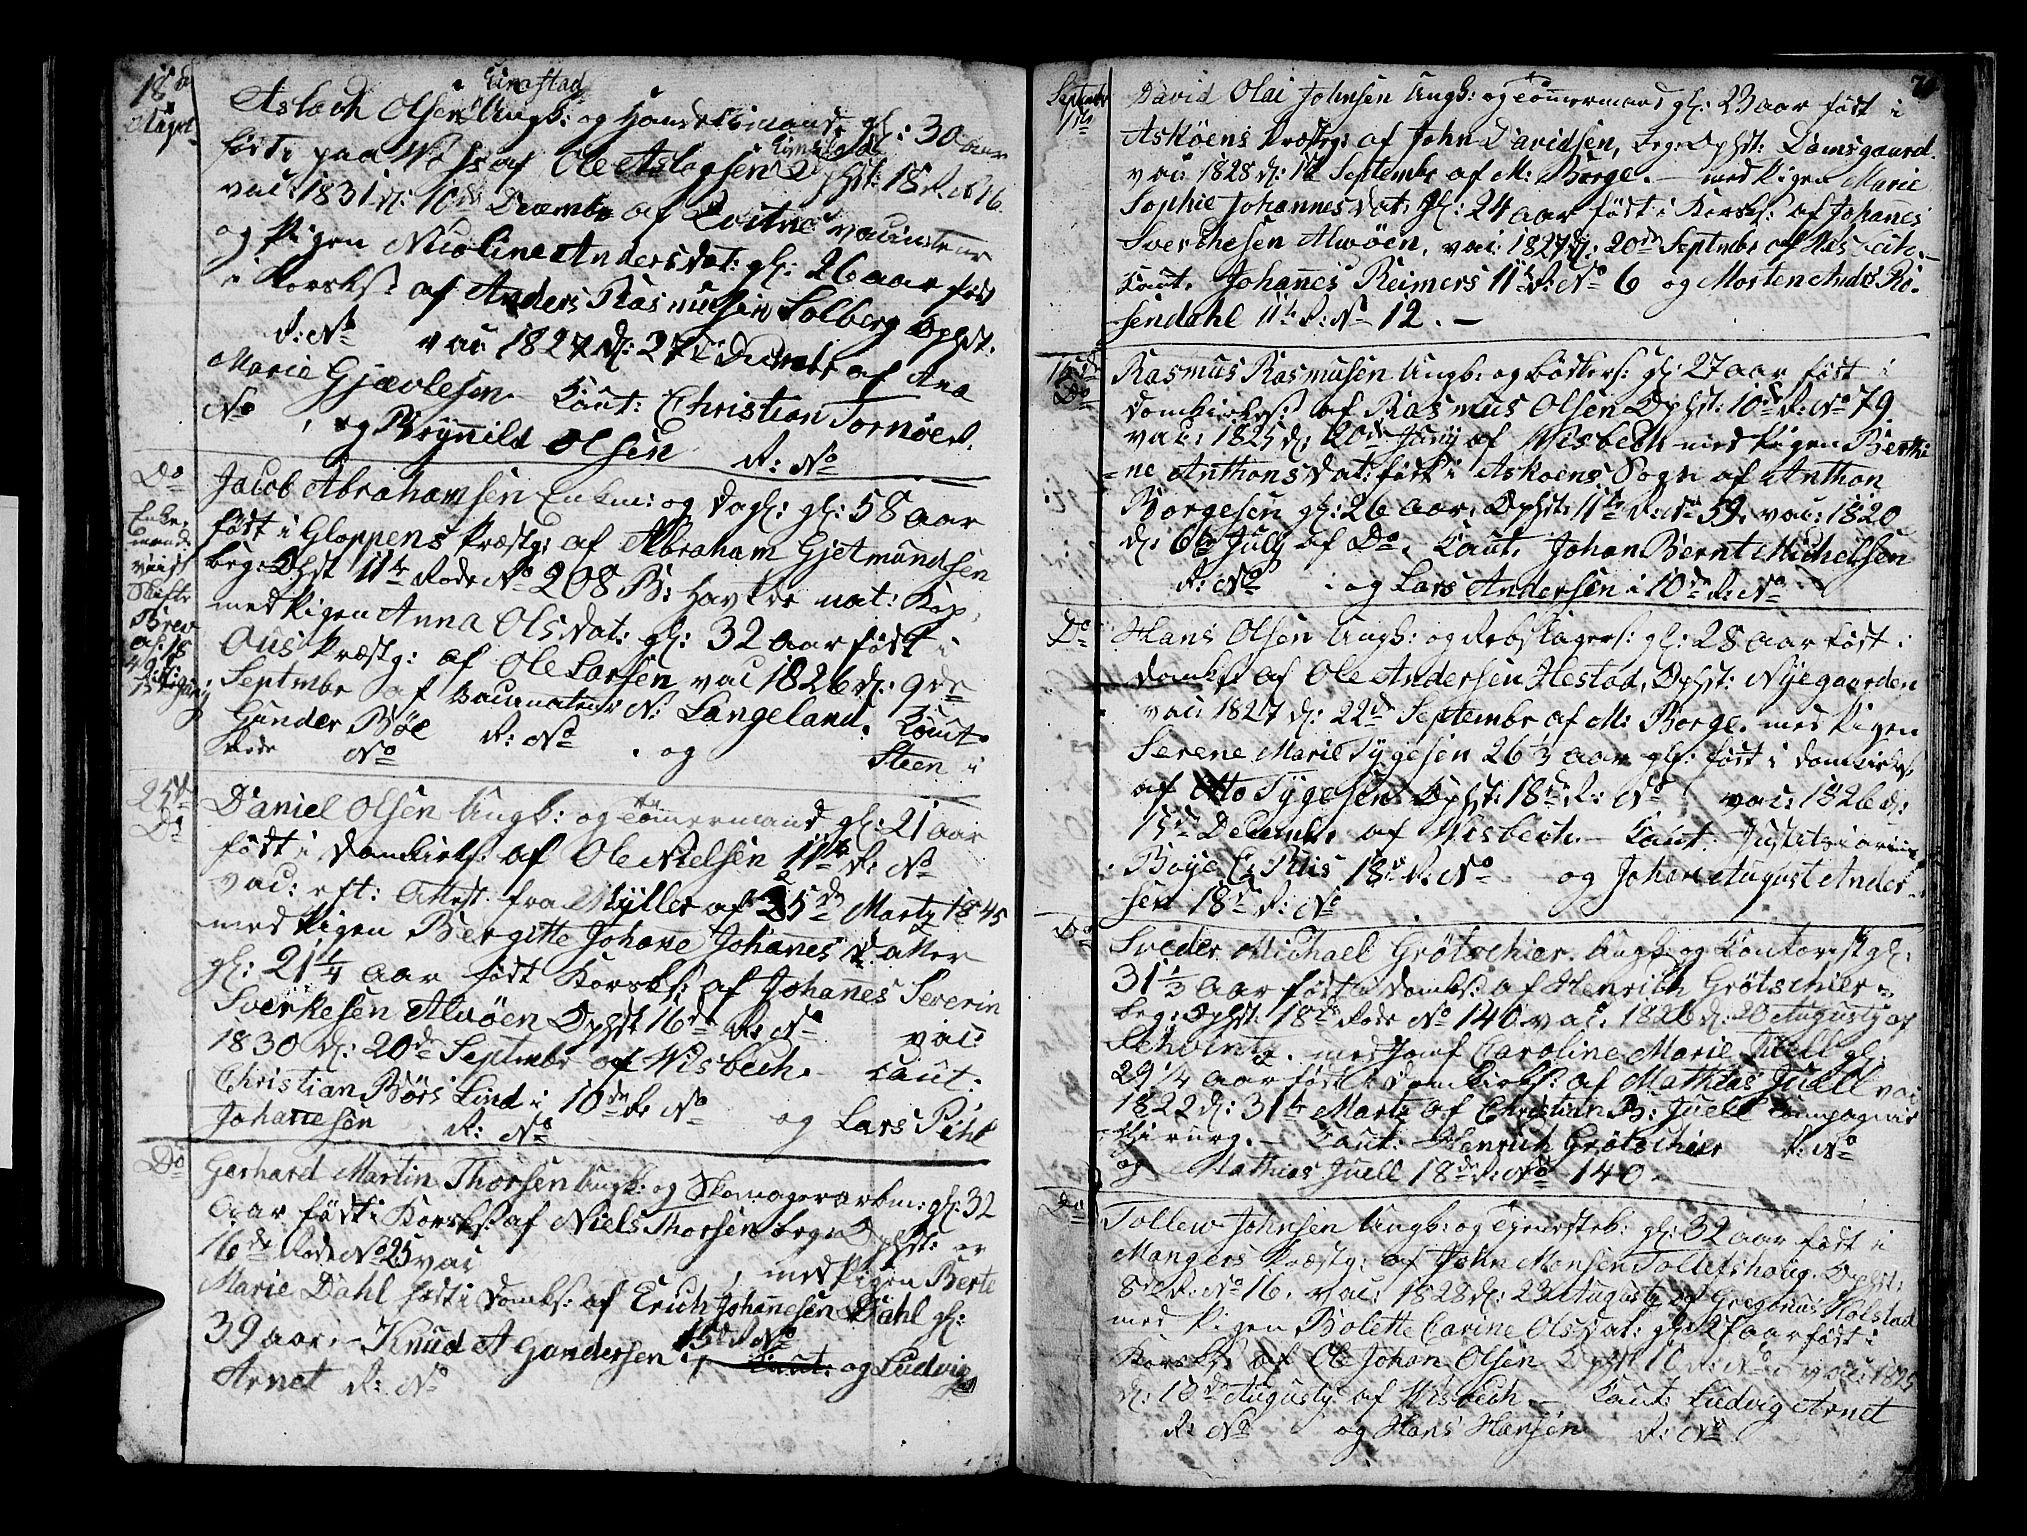 18de
August
Kinstad
Aslach Olsen Ungk: og Handelsmand gl: 30 aar
født paa Wos af Ole Aslagsen Kinstad Ophst: 18 R. No 16.
vac: 1831 d: 10de Decembr af Loitne vaccinateur
og Pigen Nicoline Andersdat: gl: 26 aar født
i Korsks: af Anders Rasmusen Solberg Ophst:
R: No vac 1827 d: 27de Decembr af Ana
Marie Gjævlesen. Caut: Christian Tornøe R.
No , og Brynild Olsen R: No
Do
Enke-
mands
viist
Skifte
Brev
af 18
Jacob Abrahamsen Enkm: og dagl: gl: 58 aar
født i Gloppens Præstg: af Abraham Gjetmundsen
beg: Ophst 11te Rode No 208 B: Hav de nat: Kop,
med Pigen Anna Olsdat: gl: 32 aar født i
Ous Præstg: af Ole Larsen vac 1826 d: 9de
Septmbr af Vaccinateur N: Langeland. Caut:
Gunder Bøe R: No . og Steen i
Rode No
25de
Do
Daniel Olsen Ungk: og Tømermand gl: 21 aar
født i Domkirks: af Ole Nielsen 11te R: No
vac: eft: Attest fra Myller af 25de Martz 1845
med Pigen Bergitte Johane Johanes Datter
gl: 21 1/4 aar født Korsks: af Johanes Severin
Sverkesen Alvøen Ophst 16de R: No vac:
1830 d: 20de Septembr af Wisbech. Caut:
Christian Børs Lind i 10de R. No og Lars Pihl
Johannesen R: No
Do
Gerhard Martin Thorsen Ungk: og Skomagerarbm: gl: 32
aar født i Korsks: af Niels Thorsen begge Ophst: er
16de Rode No 25 vac , med Pigen Berte
Marie Dahl født i Domks: af Erich Johannesen Dahl gl:
39 aar. Knud A Gundersen 15de R No Caut: og Ludvig
Arnet R: No
Septembr
1ste
David Olai Johnsen Ungk: og Tømmermand gl: 23 aar født i
Askøens Præstg: af John Davidsen, beg: Ophst: Damsgaard.
vac: 1828 d: 12 Septembr af M: Borge. – med Pigen Marie
Sophie Johannesdat: gl: 24 aar født i Korsks: af Johanes
Sverchesen Alvøen, vac: 1827 d: 20de Septmbr af
Caut. Johanes Reimers 11te R: No 6 og Morten Andr Ro-
sendahl 11te R: No 12. –
15de
Do
Rasmus Rasmusen Ungk: og Bødkers: gl: 27 aar født i
Domkirks: af Rasmus Olsen Ophst: 10de R: No 79
vac: 1825 d: 20de Juny af Wisbech med Pigen Berthi-
ne Anthonsdat: født i Askøens Sogn af Anthon
Børgesen gl: 26 aar, Ophst: 11te R: No 59, vac: 1820
d: 6te July af Do. Caut. Johan Bernt Michelsen
R: No i og Lars Andersen i 10de R: No
Do
Hans Olsen Ungk: og Rebslagers: gl: 28 aar født i
Domks: af Ole Andersen Hestad, Ophst: Nyegaarden
vac: 1827 d: 22de Septembr af M: Borge. med Pigen
Serene Marie Tygesen 26 1/3 aar gl: født i Domkirks:
af Otto Tygesen Ophst: 18de R: No vac: 1826 d:
15de Decembr af Wisbech. – Caut: Justitziarius
Boye C. Riis 18de R: No og Johan August Ander-
sen 18de R: No
Do
Sveder Michael Grötschier. Ungk: og Contorist gl:
31 1/3 aar født i Domks: af Henrich Grötschier
beg: Ophst: 18de Rode No 140 vac: 1826 d: 20 Augusty af
med Jomf Caroline Marie Juell gl:
29 1/4 aar født i Domkirks: af Mathias Juell vac
1822 d: 31te Martz af Christian B: Juell Compagnie
Chirurg. – Caut: Henrich Grötschier R: No
og Mathias Juell 18de R: No 140.
Do
Tollew Johnsen Ungk: og gl: 32 aar født i
Mangers Præstg: af John Monsen Tollefshoug. Ophst:
8de R: No 16. vac: 1828 d: 23 Augusty af Gregorius Kolstad
med Pigen Bolette Carine Olsdat: gl: 27 aar født i
Korsks: af Ole Johan Olsen Ophst R: No vac: 1825
d: 10de Augusty af Wisbech – Caut: Ludvig Arnet
R: No og Hans Hansen R: No